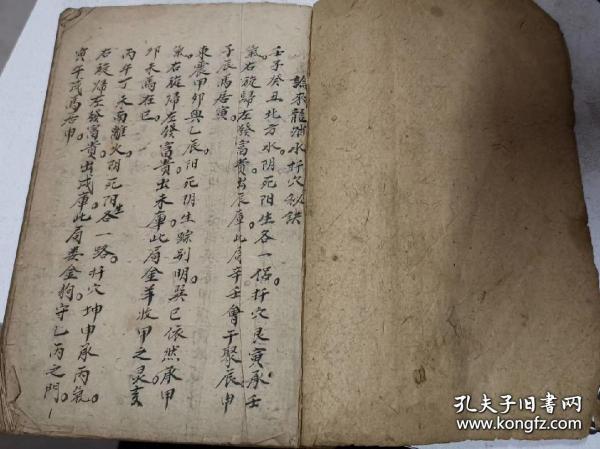 論來龍消水扦穴秘訣
壬子癸丑北方水阴死阳生各一侶扦穴艮寅承壬
氣右旋歸左發富貴出辰庫此局辛壬會于聚辰申
子辰馬居寅
東震甲卯與乙辰阳死阴生踪别明巽巳依然承甲
氣右旋歸左發富貴出未庫此局金羊收甲之灵亥
卯未馬在巳
丙午丁未南離火阴死阳生各一路扦穴坤申承丙氣
右旋歸左發富貴出戌庫此局娄金狗守乙丙之門
寅午戌馬居申
孔夫子旧书网
www.kongfz.com